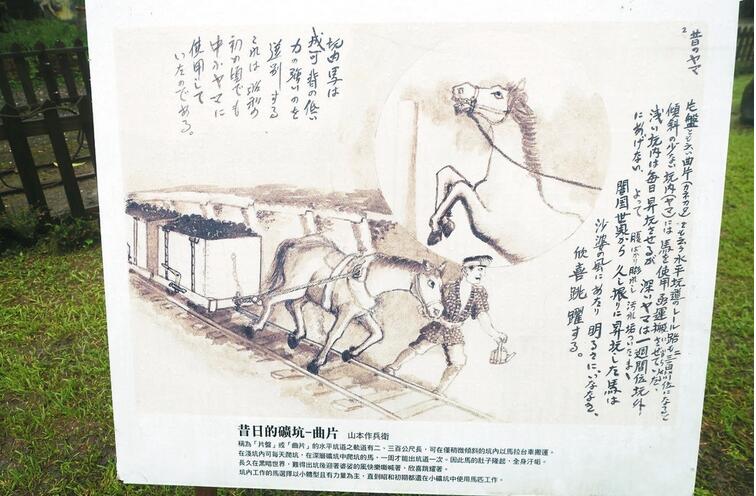 昔のヤマ
片盤とも云い曲片(カネカタ)とも云う水平坑道のレール路も二三百米位になると
傾斜の少ない坑内(ヤマ)には馬を使用函運搬させていた。
浅い坑内は毎日昇坑させるが 深いヤマは一週間位坑外
にあげない よって 腹ばかり膨れし 汚水垢
闇国世界から 久し振りに昇坑した馬は
沙婆の風にあたり 明るさにいなゝき
欣喜跳躍する。
坑内馬は
成可背の低い
力の強いのを
選別する
これは昭和の
初め頃でも
中小ヤマに
使用して
いたのである。
昔日的礦坑-曲片 山本作兵衛
稱為「片盤」或「曲片」的水平坑道之軌道有二、三百公尺長，可在僅稍微傾斜的坑內以馬拉台車搬運。
在淺坑內可每天爬坑，在深層礦坑中爬坑的馬，一周才能出坑道一次。因此馬的肚子隆起，全身汙垢。
長久在黑暗世界，難得出坑後迎著婆娑的風快樂嘶喊著、欣喜跳躍著。
坑內工作的馬選擇以小體型且有力量為主，直到昭和初期都還在小礦坑中使用馬匹工作。